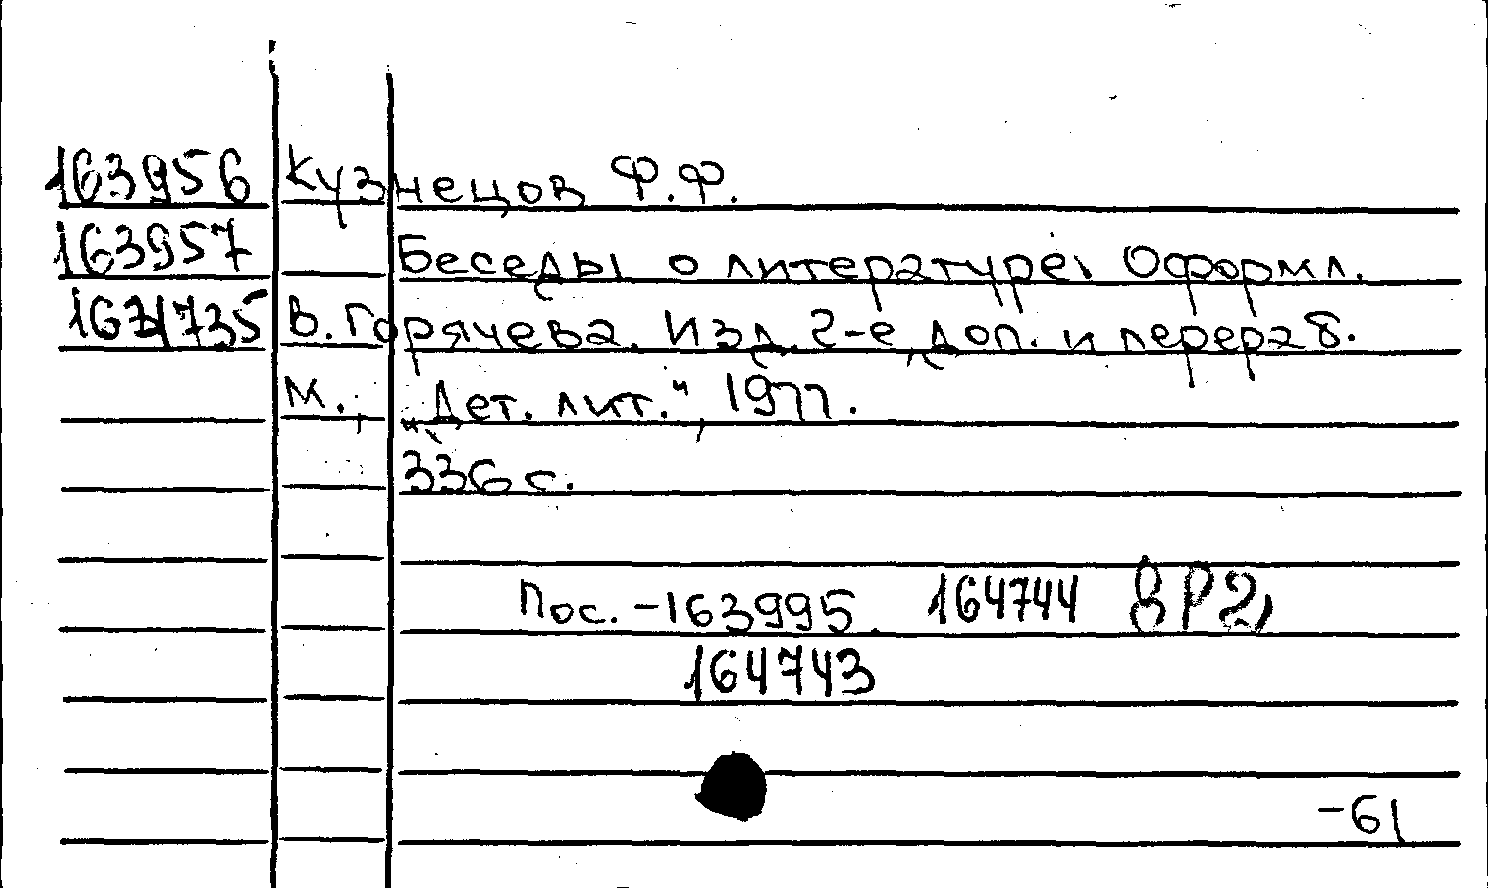 163956 Кузнецов Ф.Ф.
163957 Беседы о литературе. Оформл.
В. Горячева. Изд. 2-е, доп. и перераб.
М., „Дет. лит.", 1977.
336 с.
Пос. -163995. 164744 8Р2
164743
-61